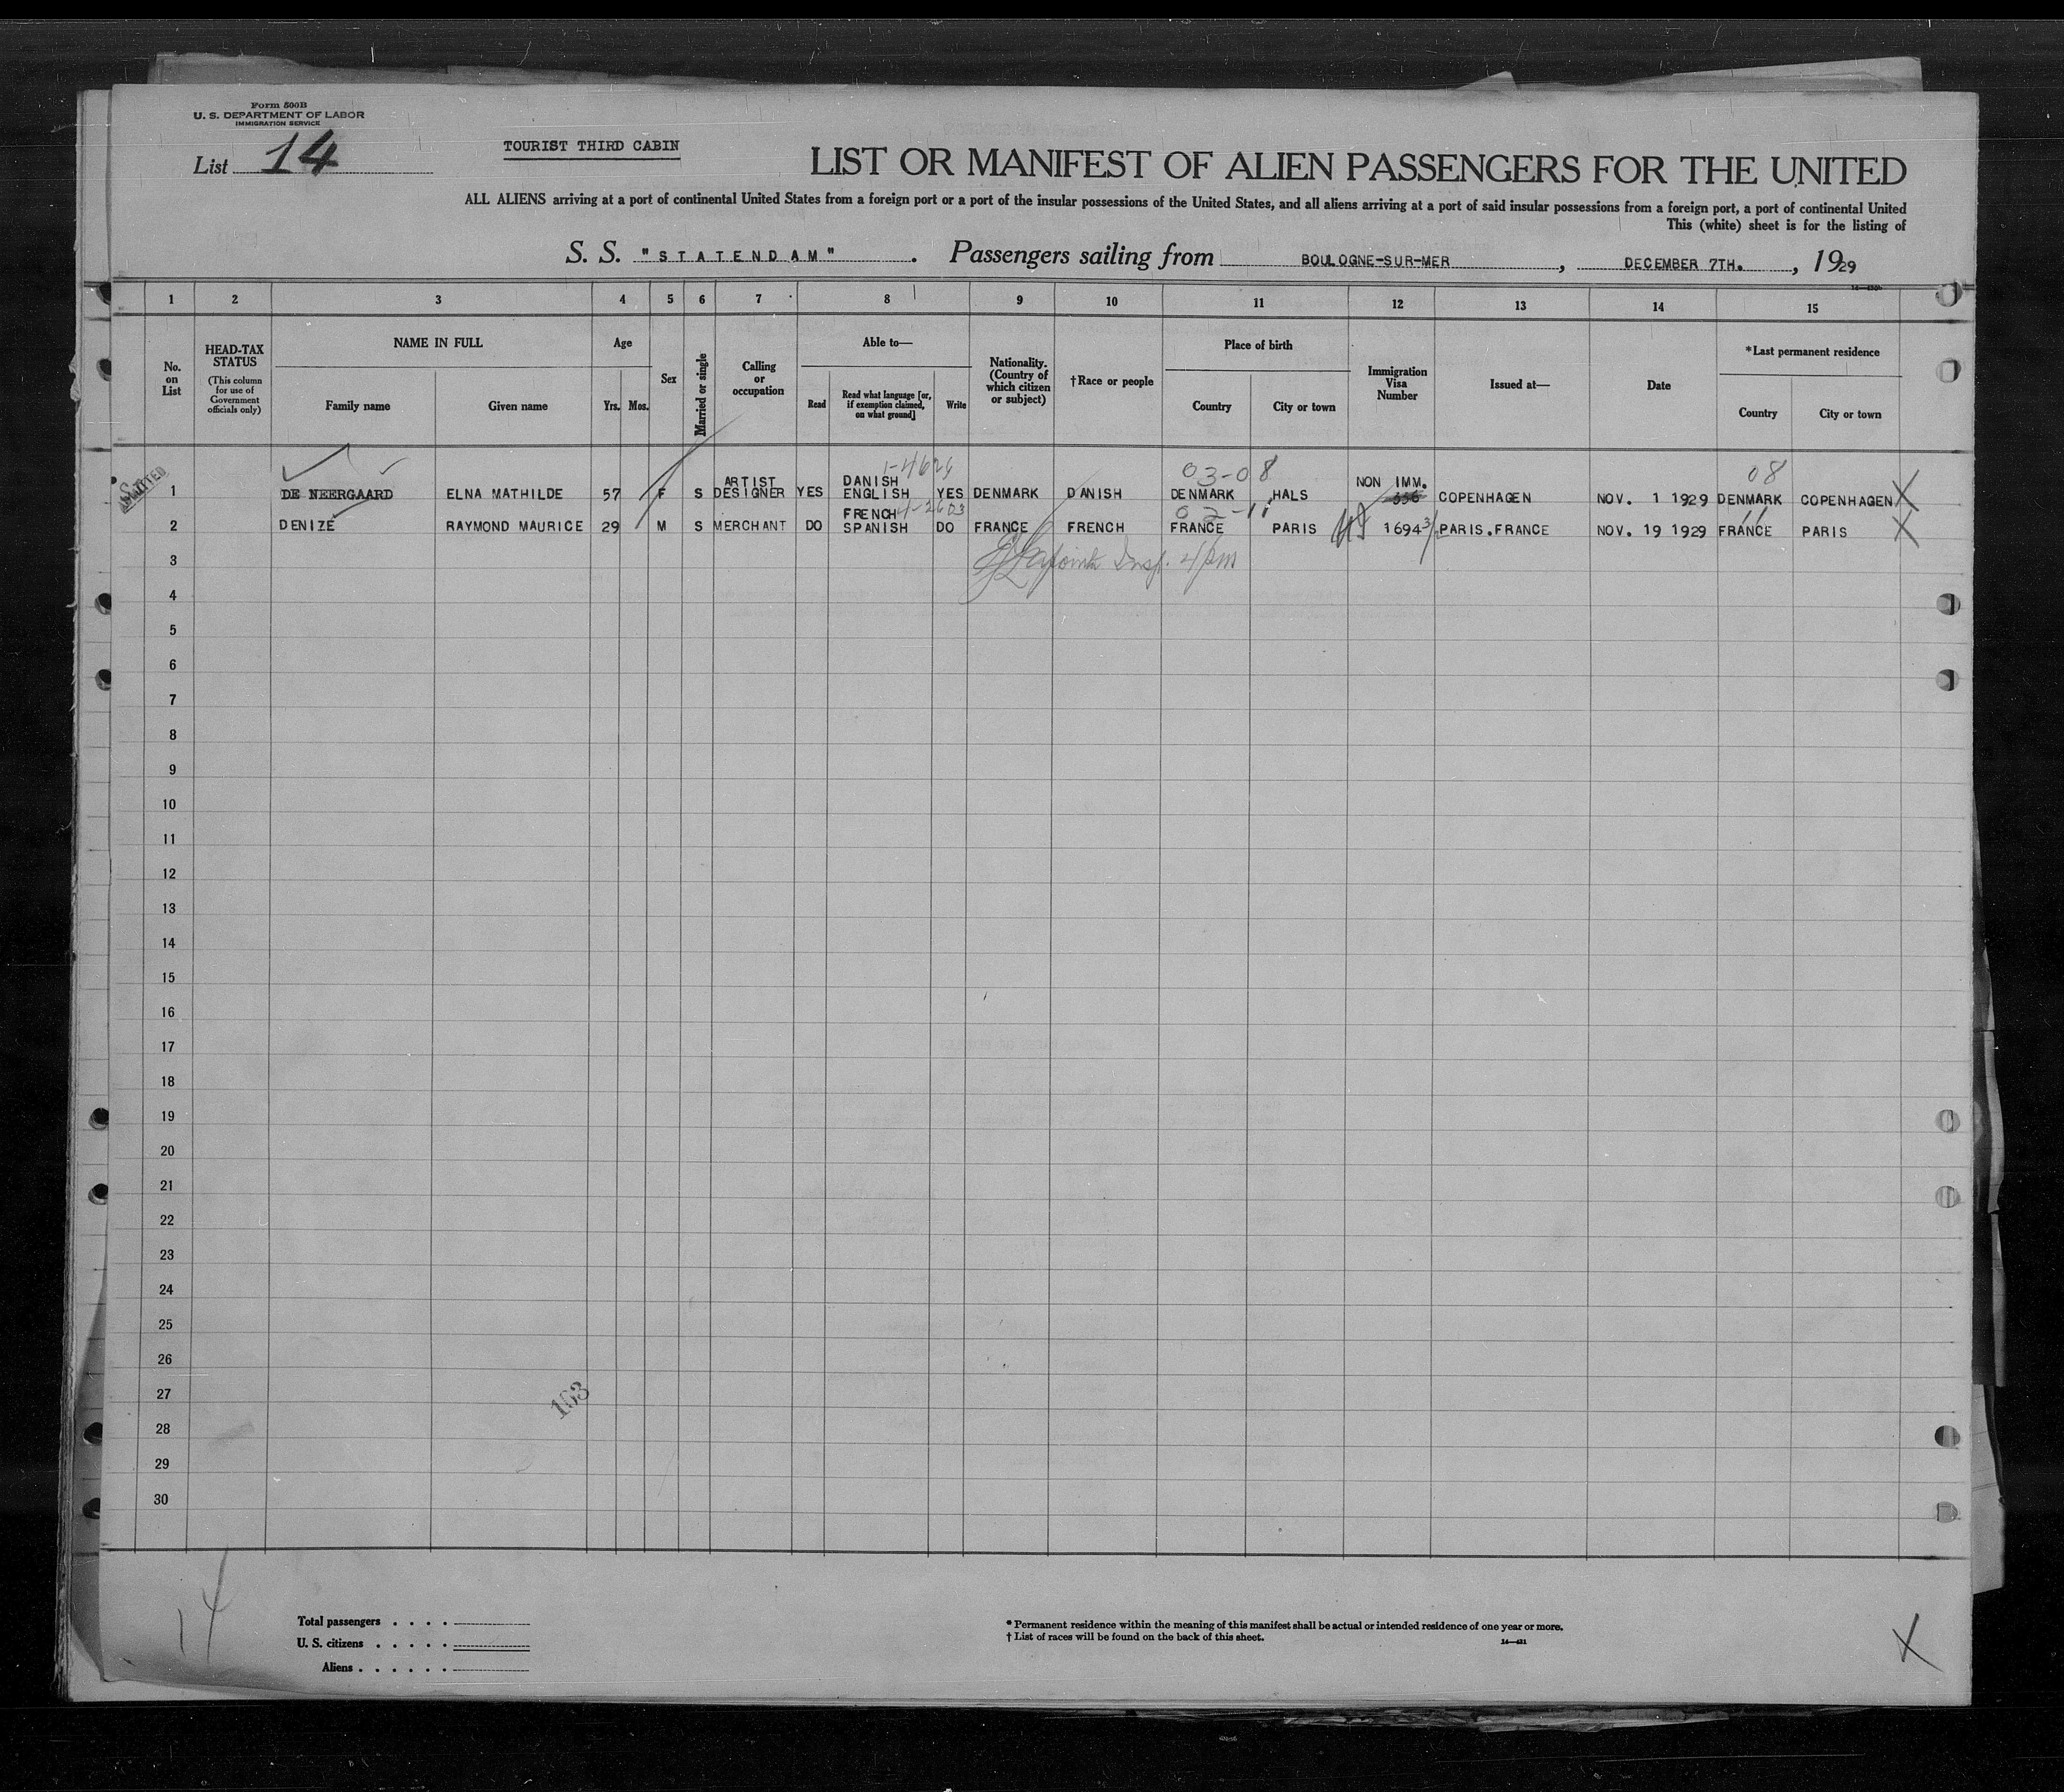 Form 500B
U. S. DEPARTMENT OF LABOR
IMMIGRATION SERVICE
List 14
TOURIST THIRD CABIN
LIST OR MANIFEST OF ALIEN PASSENGERS FOR THE UNITED
ALL ALIENS arriving at a port of continental United States from a foreign port or a port of the insular possessions of the United States, and all aliens arriving at a port of said insular possessions from a foreign port, a port of continental United
This (white) sheet is for the listing of
S. S. "STATENDAM". Passengers sailing from BOULOGNE-SUR-MER, DECEMBER 7TH., 1929
1 2 3 4 5 6 7 8 9 10 11 12 13 14 15
No. on List
HEAD-TAX STATUS
(This column for use of Government officials only)
NAME IN FULL
Family name Given name
Age
Yrs. Mos.
Sex
Married or single
Calling or occupation
Able to—
Read
Read what language [or, if exemption claimed, on what ground]
Write
Nationality. (Country of which citizen or subject)
†Race or people
Place of birth
Country City or town
Immigration Visa Number
Issued at—
Date
*Last permanent residence
Country City or town
03-08 08
1 DE NEERGAARD ELNA MATHILDE 57 F S ARTIST DESIGNER YES DANISH ENGLISH YES DENMARK DANISH DENMARK HALS NON IMM. COPENHAGEN NOV. 1 1929 DENMARK COPENHAGEN X
02-11 11
2 DENIZE RAYMOND MAURICE 29 M S MERCHANT DO FRENCH SPANISH DO FRANCE FRENCH FRANCE PARIS 1694 PARIS.FRANCE NOV. 19 1929 FRANCE PARIS X
3 Insp. 4 pm
4
5
6
7
8
9
10
11
12
13
14
15
16
17
18
19
20
21
22
23
24
25
26
27
28
29
30
103
14
Total passengers . . . .
U. S. citizens . . . . .
Aliens . . . . . .
* Permanent residence within the meaning of this manifest shall be actual or intended residence of one year or more.
† List of races will be found on the back of this sheet.
14—421
X